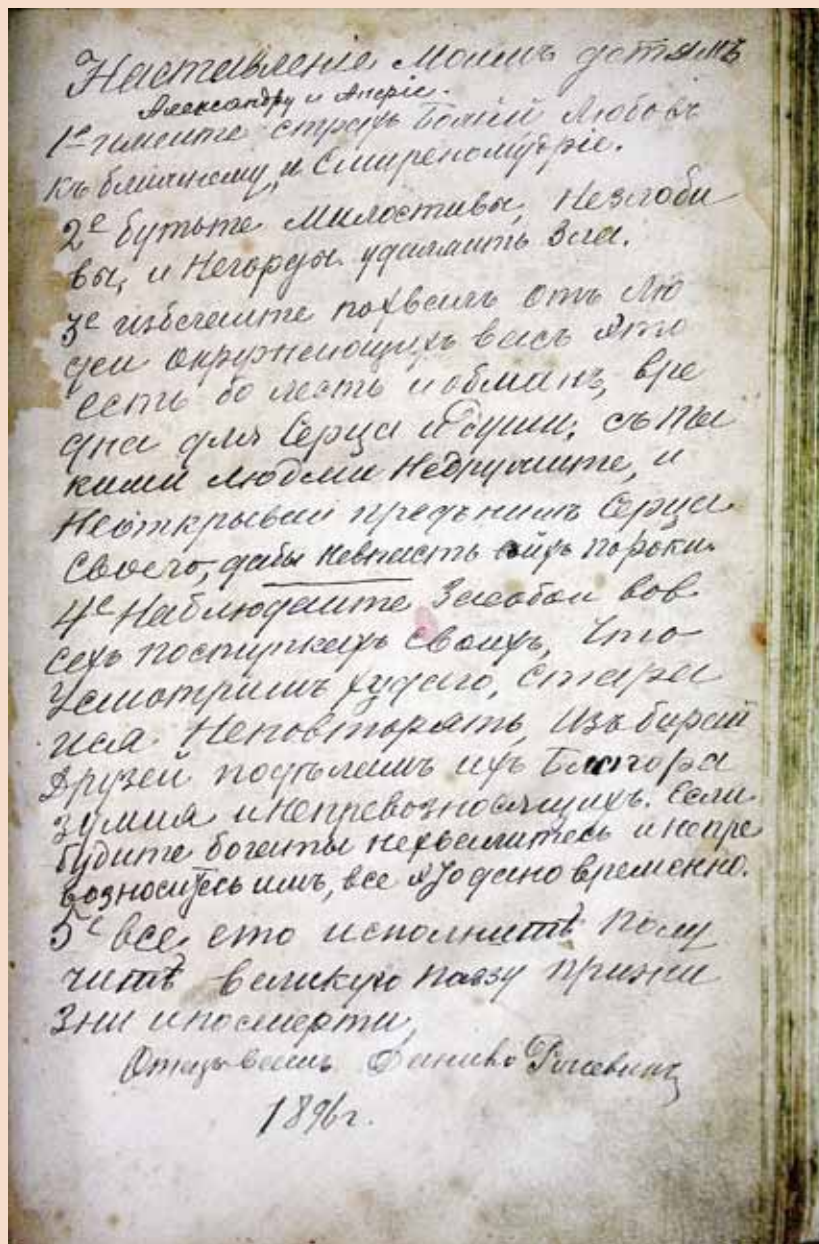 Наставленіе Моимъ дѣтямъ
Александру и
1е имейте страхъ Божій Любовь
къ ближнему, и Смиреномудріе.
2е будьте Милостивы, Незлоби
вы, и Негорды. удаляйтъ Зла.
3е избегайте похвалъ отъ Лю
деи окружающихъ васъ это
есть бо лесть и обманъ, вре
дна для Серца и Души. съ та
кими людми Недружите, и
Неоткрывай предъ нимъ Серца
Своего, дабы невпасть пороки.
4е Наблюдайте Засобои вов
сехъ поступкахъ своихъ, Что
Усмотримъ худаго, стара
ися Неповторять, Изъ бирай
Друзей подѣламъ ихъ Благора
зумия инепревозносящихъ. Если
будите богаты нехвалитесь и непре
возноситесь имъ, все это дано временно.
5е все, ето исполнитѣ Полу
читѣ великую ползу прижи
зни ипосмерти,
Отецъ вашъ
1896г.